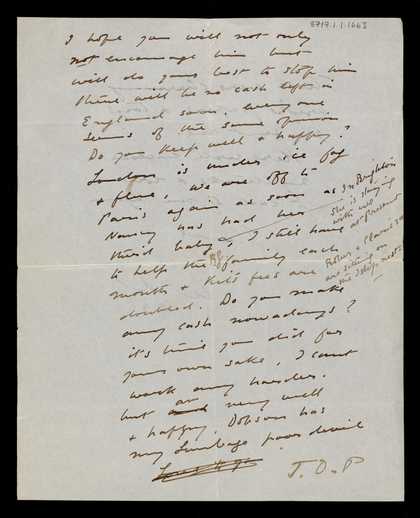 8717.1.1.1663
I hope you will not only
not encourage him but
will do your best to stop him
there will be no cash left in
England soon. everyone
seems of the same opinion
Do you keep well & happy?
London is under ice fog
& flue, we are off to
Paris again as soon as
Nancy has had her
third baby, I still have
to help the family each
month & Kit's fees are
doubled. Do you make
any cash nowadays?
it's time you did for
your own sake, I cant
work any harder.
but am very well
& happy. Dobson has
my Lumbago poor devil
J. D. P
In Brighton
She is staying
with us
at present
Robin &
are sitting on
the 3 step